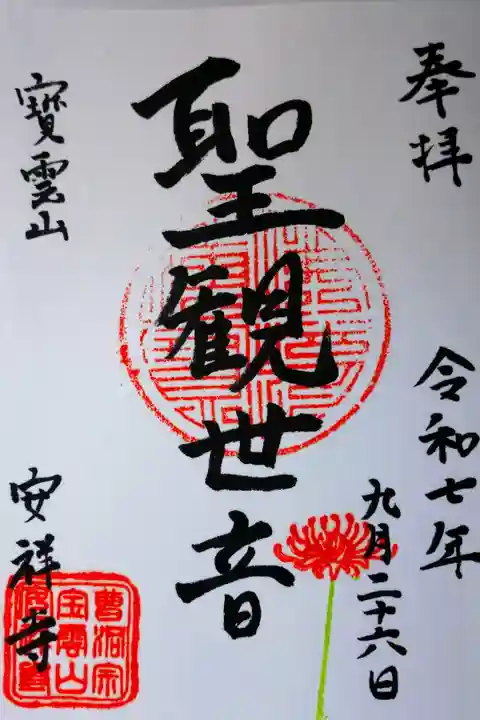 奉拝
令和七年
九月二十六日
聖観世音
寶雲山
安祥寺
曹洞宗
宝雲山
安祥寺